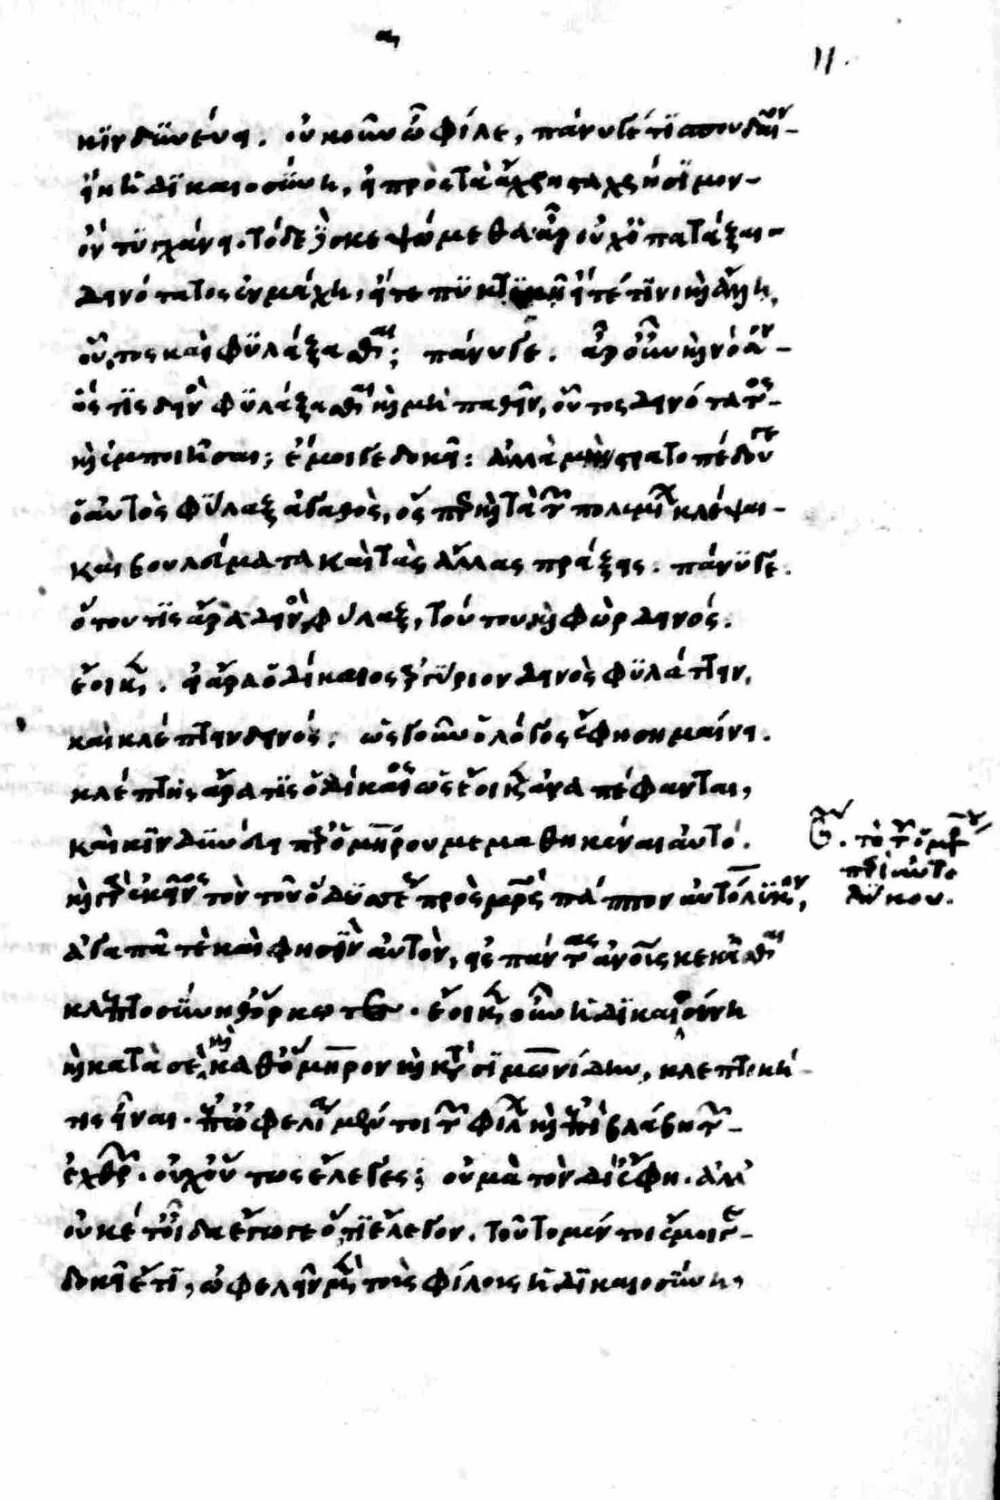 α
11.
κινδυνεύει. οὐκοῦν ὦ φίλε, πάνυ γέ τι σπουδαῖον
εἴη ἡ δικαιοσύνη, εἰ πρὸς τὰ ἄχρηστα χρήσιμον
ὂν τυγχάνει. τόδε δὲ σκεψώμεθα. ἆρ' οὐχ ὁ πατάξαι
δεινότατος ἐν μάχη, εἴτε πυκτικῆ εἴτέ τινι καὶ ἄλλη,
οὗτος καὶ φυλάξασθαι; πάνυ γε. ἆρ' οὖν καὶ νόσον
ὅς τις δεινὸς φυλάξασθαι καὶ μὴ παθεῖν, οὗτος δεινότατος
καὶ ἐμποιῆσαι; ἔμοιγε δοκεῖ: ἀλλὰ μὴν στρατοπέδου γε
ὁ αὐτὸς φύλαξ ἀγαθὸς, ὅς περ καὶ τὰ τῶν πολεμίων κλέψαι
καὶ βουλεύματα καὶ τὰς ἄλλας πράξεις. πάνυ γε.
ὅτου τις ἄρα δεινὸς φύλαξ, τούτου καὶ φὼρ δεινός.
ἔοικεν. εἰ ἄρα ὁ δίκαιος ἀργύριον δεινὸς φυλάττειν,
καὶ κλέπτειν δεινός; ὡς γοῦν ὁ λόγος ἔφη σημαίνει.
κλέπτης ἄρα τις ὁ δίκαιος ὡς ἔοικεν ἀναπέφανται,
καὶ κινδυνεύει παρ' ὁμήρου μεμαθηκέναι αὐτό.
καὶ γὰρ ἐκεῖνος τὸν τοῦ ὀδυσσέως πρὸς μητρὸς πάππον αὐτόλυκον,
ἀγαπᾶ τὲ καὶ φησιν αὐτὸν, ἐς πάντας ἀνθρώπους κεκᾶσθαι
κλεπτοσύνη θ' ὅρκω τε. ἔοικεν οὖν ἡ δικαιοσύνη
καὶ κατὰ σὲ καὶ καθ' ὅμηρον καὶ κατὰ σιμωνίδην, κλεπτική
τις εἶναι. ἐπ' ὠφελεία μέντοι τῶν φίλων καὶ ἐπὶ βλάβη τῶν
ἐχθρῶν. οὐχ οὕτως ἔλεγες; οὐ μὰ τὸν δί' ἔφη. ἀλλ'
οὐκέτι οἶδα ἔγωγε ὅ,τι ἔλεγον. τοῦτο μέντοι ἔμοιγε
δοκεῖ ἔτι, ὠφελεῖν μὲν τοὺς φίλους ἡ δικαιοσύνη,
τὸ τοῦ ὁμήρου
περὶ αὐτο
λύκου.